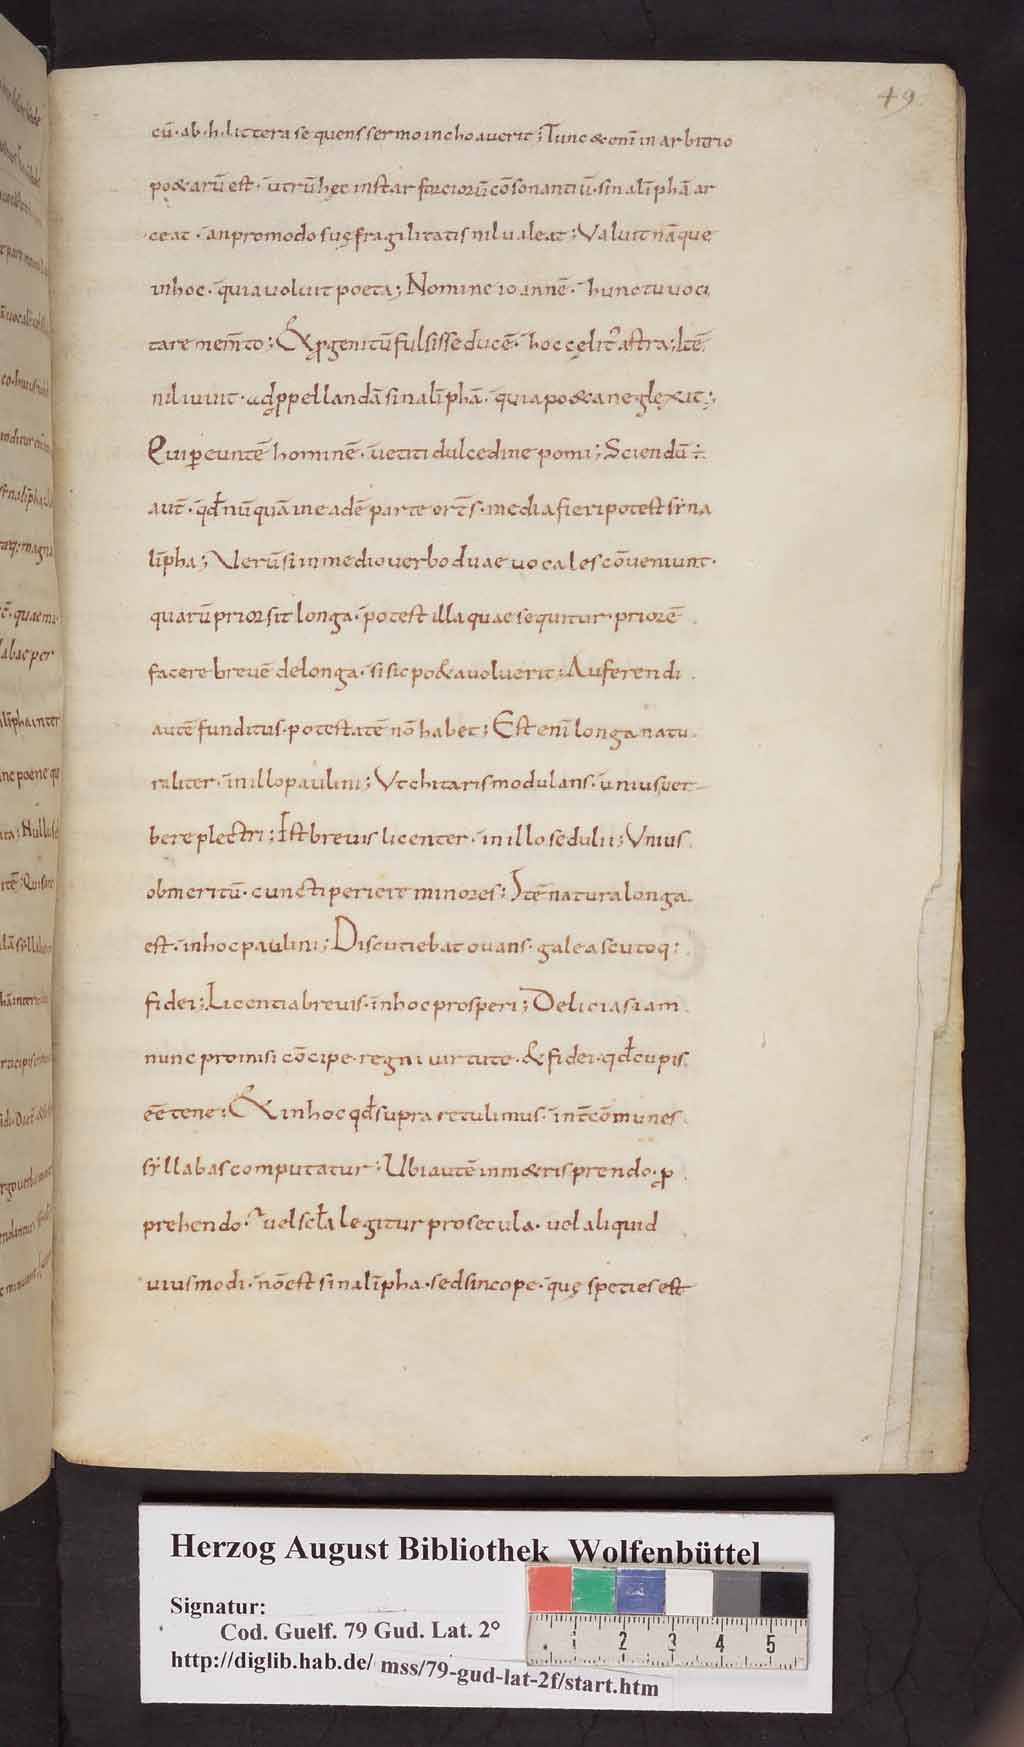 49
cū · ab · h · littera sequens sermo inchoauerit ; Tunc & enī in arbitrio
po&arū est · utrū hęc instar forciorū cōsonantiū · sinalīphā ar
ceat · an pro modo suę fragilitatis nil ualeat ; Valuit nāque
in hoc · quia uoluit poeta ; Nomine ioannē · hunc tu uoci
tare mem̄to ; Exꝓgenitū fulsisse ducē · hoc cęlitꝰ astra ; Itē
nil iuuit · ad ꝓpellandā sinalīphā · quia po&a neglęxit ;
Qui ꝑeuntē hominē · uetiti dulcedine pomi ; Sciendū ÷
aut̄ · qđ nūquā in eadē parte or̄ts · media fieri potest sẏna
līpha ; Verū si in medio uerbo duae uocales cōueniunt ·
quarū prior sit longa · potest illa quae sequitur · priorē
facere breuē de longa · si sic po&a uoluerit ; Auferendi
autē funditus · potestatē nō habet ; Est enī longa natu
raliter · in illo paulini ; Vt chitaris modulans · unius uer
bere plectri ; Ist breuis licenter · in illo sedulii ; Vnius
ob meritū · cuncti periere minores ; Itē natura longa
est · in hoc paulini ; Discutiebat ouans · galea scutoq;
fidei ; Licentia breuis · in hoc prosperi ; Delicias iam
nunc promisi cōcipe · regni uirtute · & fidei · qđ cupis
eē tene ; & in hoc qđ supra retulimus · int̄ cōmunes
sẏllabas computatur ; Ubi autē in m&ris prendo · ꝓ
prehendo · uel scła legitur pro secula · uel aliquid
uiusmodi · nō est sinalīpha · sed sincope · quę species est
Herzog August Bibliothek Wolfenbüttel
Signatur:
Cod. Guelf. 79 Gud. Lat. 2°
http://diglib.hab.de/ mss/79-gud-lat-2f/start.htm
1 2 3 4 5